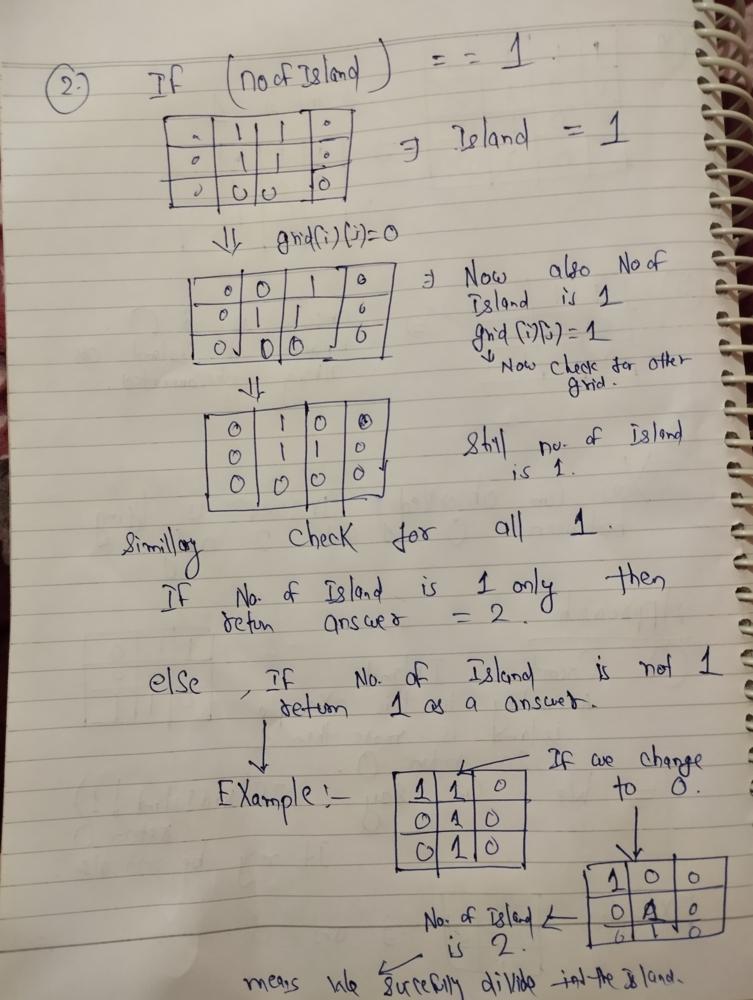 2.) If (no of Island) == 1.
. 1 1 0
0 1 1 0 ⇒ Island = 1
0 0 0 0
⇓ grid(i)(j)=0
0 0 1 0 ⇒ Now also No of
0 1 1 0 Island is 1
0 0 0 0 grid(i)(j)=1
↳ Now check for other
grid.
⇓
0 1 0 0
0 1 1 0 Still no. of Island
0 0 0 0 is 1.
Simillary check for all 1.
If No. of Island is 1 only then
retun answer = 2.
else, If No. of Island is not 1
return 1 as a answer.
If we change
to 0.
Example :-
1 1 0
0 1 0
0 1 0
1 0 0
0 1 0
0 1 0
No. of Island
is 2.
means we divide the Island.